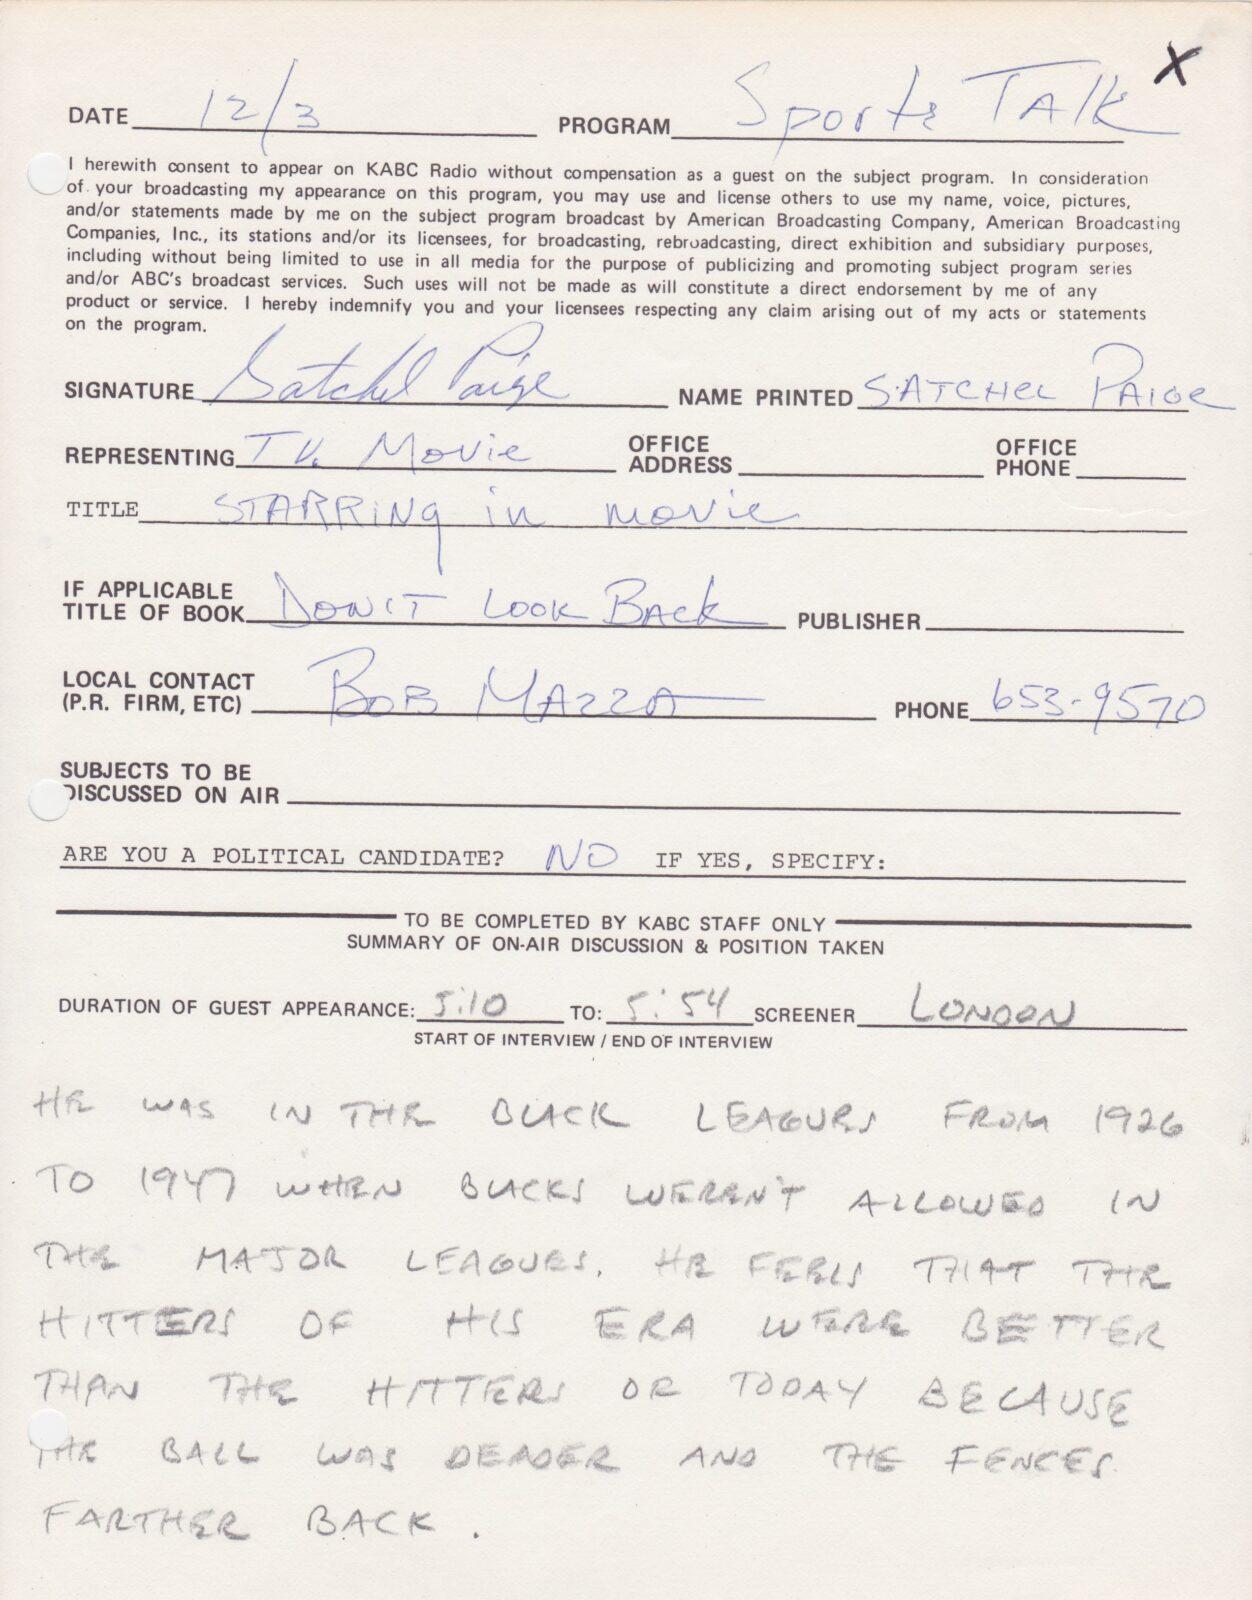 X
DATE 12/3 PROGRAM Sports Talk
I herewith consent to appear on KABC Radio without compensation as a guest on the subject program. In consideration
of your broadcasting my appearance on this program, you may use and license others to use my name, voice, pictures,
and/or statements made by me on the subject program broadcast by American Broadcasting Company, American Broadcasting
Companies, Inc., its stations and/or its licensees, for broadcasting, rebroadcasting, direct exhibition and subsidiary purposes,
including without being limited to use in all media for the purpose of publicizing and promoting subject program series
and/or ABC's broadcast services. Such uses will not be made as will constitute a direct endorsement by me of any
product or service. I hereby indemnify you and your licensees respecting any claim arising out of my acts or statements
on the program.
SIGNATURE Satchel Paige NAME PRINTED SATCHEL PAIGE
REPRESENTING T.V. Movie OFFICE ADDRESS OFFICE PHONE
TITLE STARRING in movie
IF APPLICABLE
TITLE OF BOOK DON'T LOOK BACK PUBLISHER
LOCAL CONTACT
(P.R. FIRM, ETC) BOB MAZZA PHONE 653-9570
SUBJECTS TO BE
DISCUSSED ON AIR
ARE YOU A POLITICAL CANDIDATE? NO IF YES, SPECIFY:
TO BE COMPLETED BY KABC STAFF ONLY
SUMMARY OF ON-AIR DISCUSSION & POSITION TAKEN
DURATION OF GUEST APPEARANCE: 5:10 TO: 5:54 SCREENER LONDON
START OF INTERVIEW / END OF INTERVIEW
HE WAS IN THE BLACK LEAGUES FROM 1926
TO 1947 WHEN BLACKS WEREN'T ALLOWED IN
THE MAJOR LEAGUES. HE FEELS THAT THE
HITTERS OF HIS ERA WERE BETTER
THAN THE HITTERS OR TODAY BECAUSE
THE BALL WAS DEADER AND THE FENCES
FARTHER BACK.